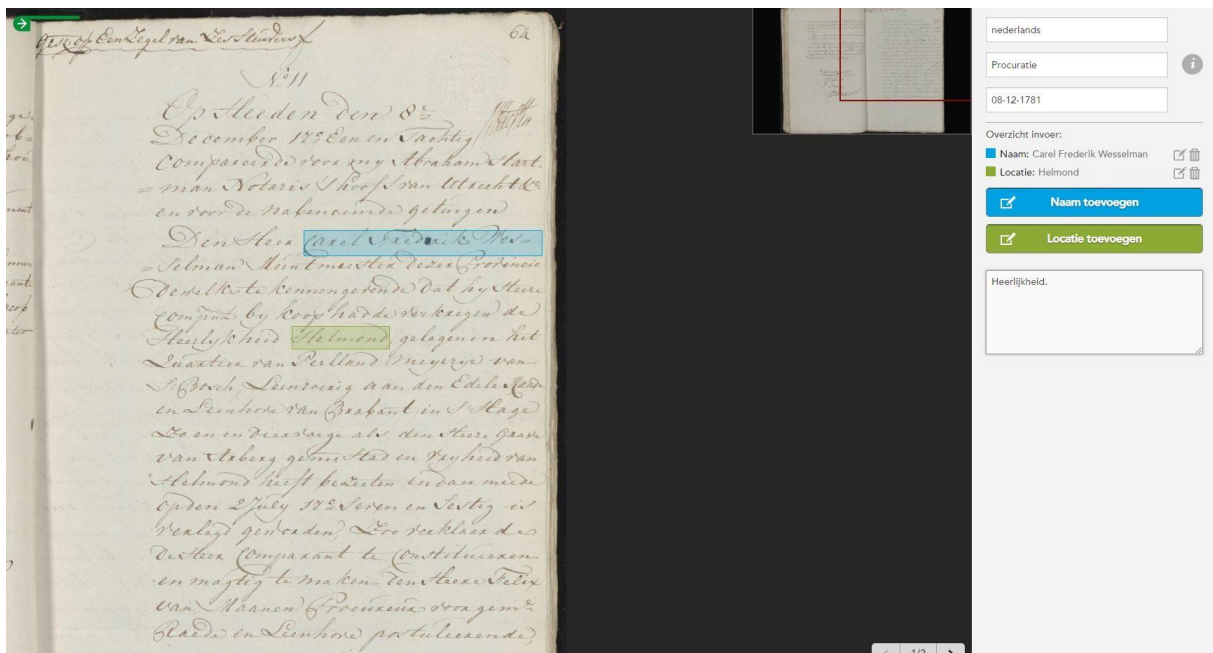 gesc. op Een Zegel van Ses Stuivers
62
No 11
Op Heeden Den 8e
December 17c Een en Tachtig
Compareerde voor my Abraham Hart-
=man Notaris 's hoofs van Utrecht &c
en voor de nabenoemde getuigen
Den Heer Carel Frederik Wes-
=selman Muntmeester dezer Provincie
Dewelke te kennen gevende Dat hy Heere
Compnt by koop hadde verkregen de
Heerlykheid Helmond gelegen in het
Quartier van Peelland Meyerye van
s Bosch Leenroerig aan den Edele Raade
en Leenhove van Brabant in s Hage
Zo en in Diervoege als den Heere Grave
van Arberg geme Stad en Vryheid van
Helmond heeft bezeten en daar meede
op den 2 July 17c Seven en Sestig is
verlegd geworden, Zoo verklaarde
De Heer Comparant te Constitueeren
en magtig te maken Den Heere Felix
van Maanen Procureur voor geme
Raede en Leenhove postuleerende,
nederlands
Procuratie
i
08-12-1781
Overzicht invoer:
Naam: Carel Frederik Wesselman
Locatie: Helmond
Naam toevoegen
Locatie toevoegen
Heerlijkheid.
1/2